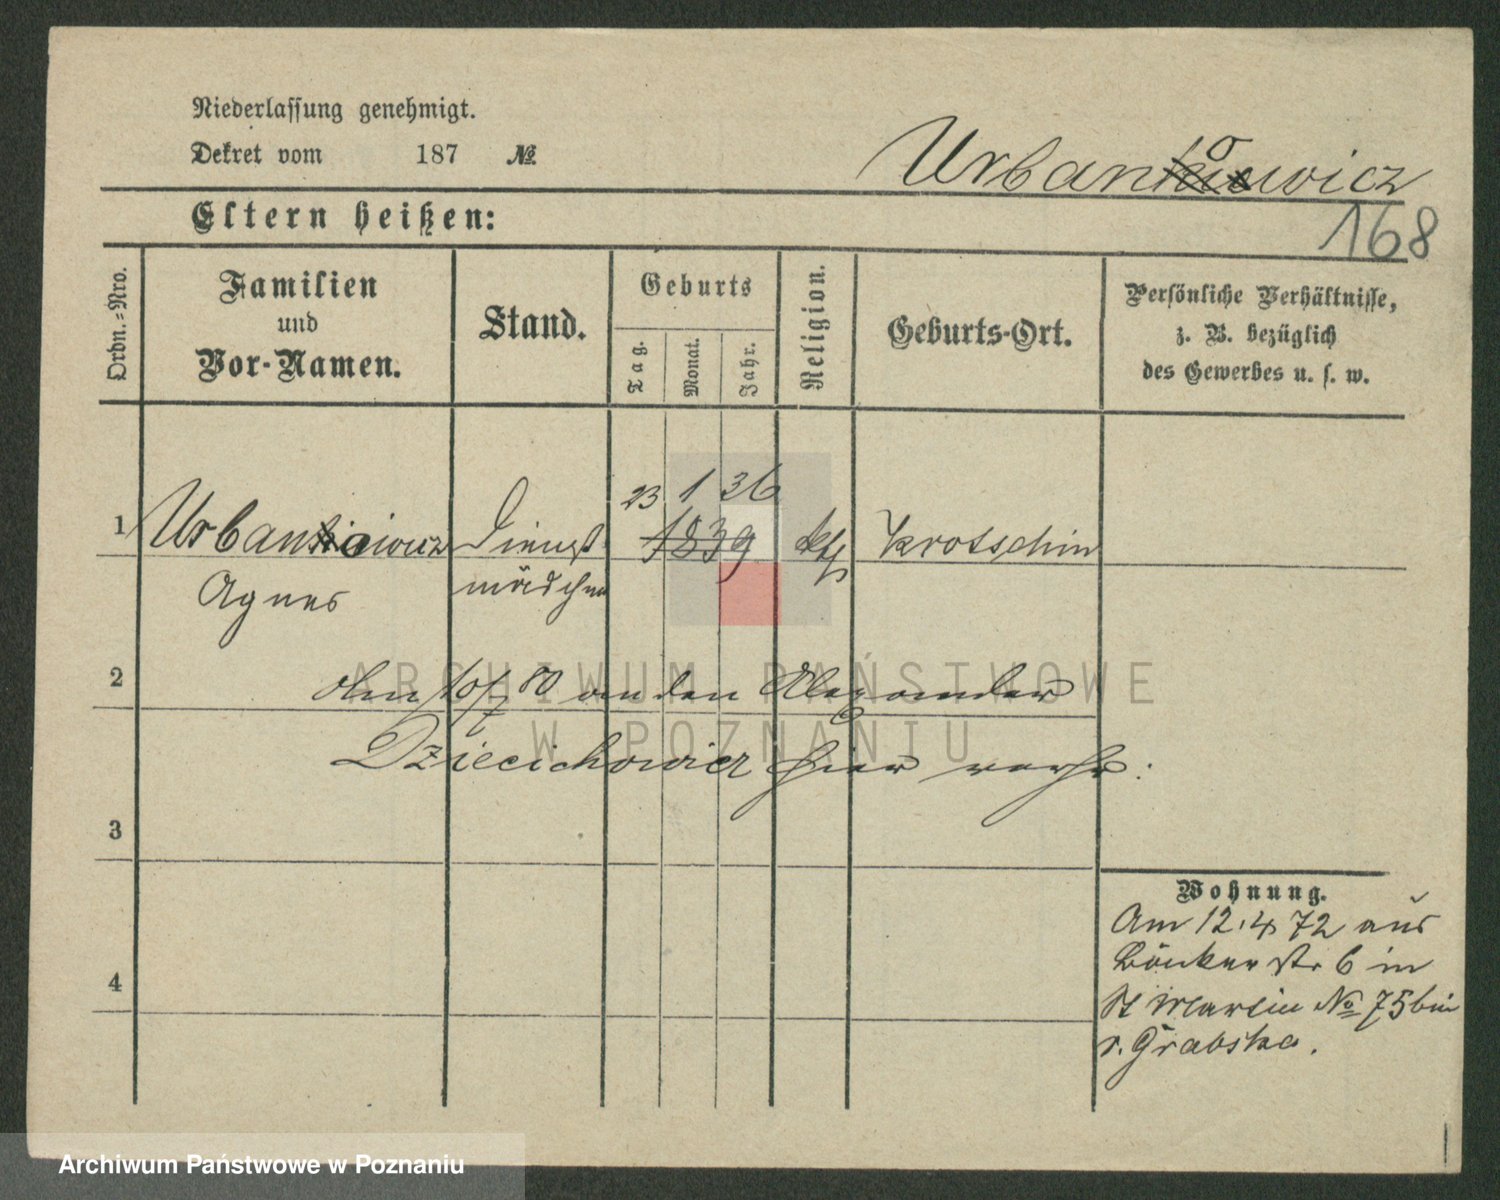 Niederlassung genehmigt.
Dekret vom 187 №
Urbanowicz
168
Eltern heißen:
Ordn.-Nro.
Familien
und
Vor-Namen.
Stand.
Geburts
Tag.
Monat.
Jahr.
Religion.
Geburts-Ort.
Persönliche Verhältnisse,
z. B. bezüglich
des Gewerbes u. s. w.
23 1 36
1 Urbanowicz Dienst 1839 kth Krotschin
Agnes mädchen
2 Am 10/7 80 an den Alexander
Dziecichowicz hier verh:
3
4
Wohnung.
Am 12.4 72 aus
Bäckerstr 6 in
St Martin № 75 bei
v. Grabska.
ARCHIWUM PAŃSTWOWE
W POZNANIU
Archiwum Państwowe w Poznaniu